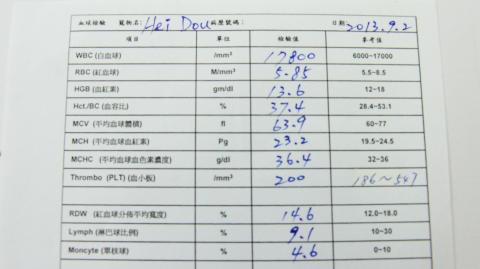 血球檢驗 寵物名: Hei Dou 病歷號碼: 日期 2013.9.2
項目 單位 檢驗值 參考值
WBC (白血球) /mm³ 17800 6000~17000
RBC (紅血球) M/mm³ 5.85 5.5~8.5
HGB (血紅素) gm/dl 13.6 12~18
Hct./BC (血容比) % 37.4 28.4~53.1
MCV (平均血球體積) fl 63.9 60~77
MCH (平均血球血紅素) Pg 23.2 19.5~24.5
MCHC (平均血球血色素濃度) g/dl 36.4 32~36
Thrombo (PLT) (血小板) /mm³ 200 186~547
RDW (紅血球分佈平均寬度) % 14.6 12.0~18.0
Lymph (淋巴球比例) % 9.1 10~30
Moncyte (單核球) % 4.6 0~10